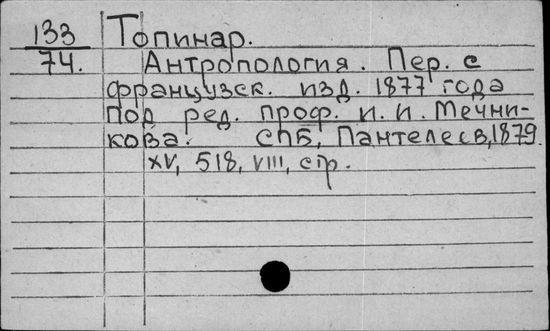 133 Топинар.
74. Антропология. Пер. с
французск. изд. 1877 года
под ред. проф. И. И. Мечни-
кова. СПБ, Пантелеев, 1879.
XV, 518, VIII, стр.